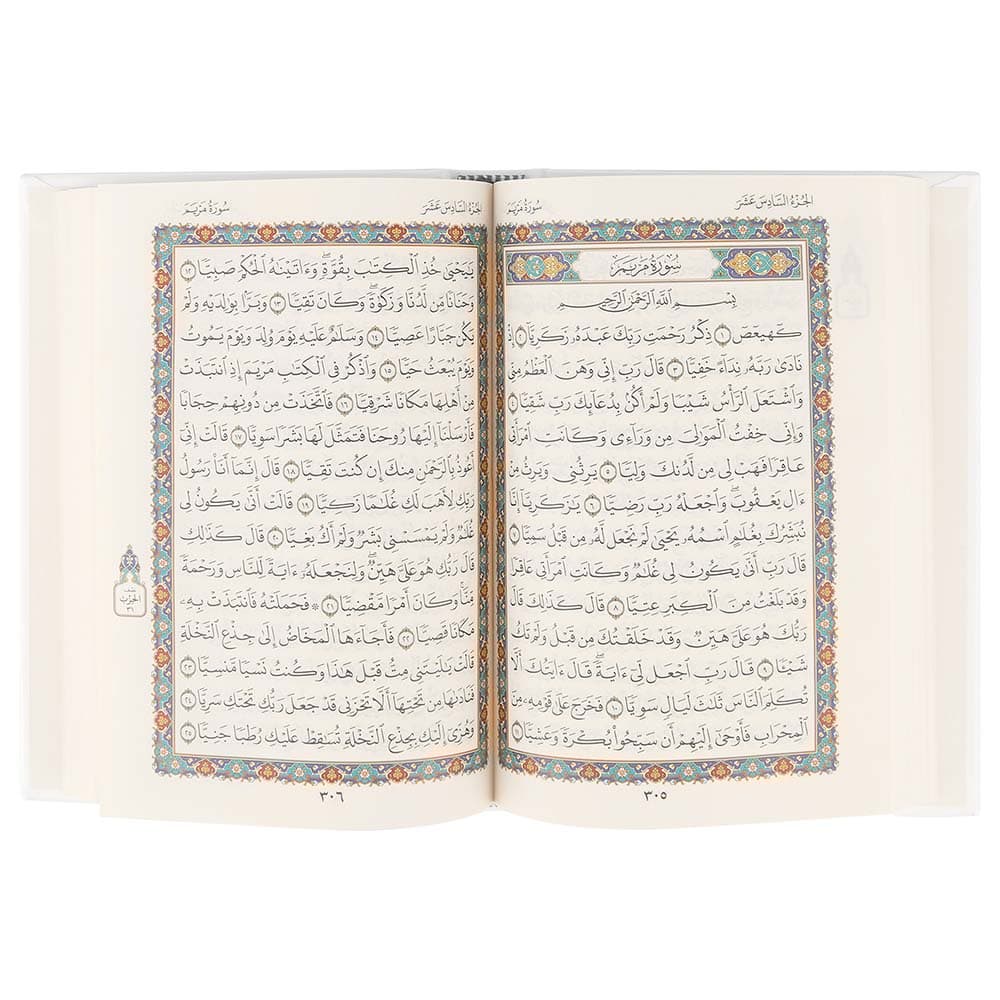 سُورَةُ مَرْيَمَ
الجُزْءُ السَّادِسَ عَشَرَ
سُورَةُ مَرْيَمَ
بِسْمِ اللَّهِ الرَّحْمَٰنِ الرَّحِيمِ
كٓهيعٓصٓ ١ ذِكْرُ رَحْمَتِ رَبِّكَ عَبْدَهُۥ زَكَرِيَّآ ٢ إِذْ
نَادَىٰ رَبَّهُۥ نِدَآءً خَفِيًّا ٣ قَالَ رَبِّ إِنِّى وَهَنَ ٱلْعَظْمُ مِنِّى
وَٱشْتَعَلَ ٱلرَّأْسُ شَيْبًا وَلَمْ أَكُنۢ بِدُعَآئِكَ رَبِّ شَقِيًّا ٤
وَإِنِّى خِفْتُ ٱلْمَوَٰلِىَ مِن وَرَآءِى وَكَانَتِ ٱمْرَأَتِى
عَاقِرًا فَهَبْ لِى مِن لَّدُنكَ وَلِيًّا ٥ يَرِثُنِى وَيَرِثُ مِنْ
ءَالِ يَعْقُوبَ ۖ وَٱجْعَلْهُ رَبِّ رَضِيًّا ٦ يَٰزَكَرِيَّآ إِنَّا
نُبَشِّرُكَ بِغُلَٰمٍ ٱسْمُهُۥ يَحْيَىٰ لَمْ نَجْعَل لَّهُۥ مِن قَبْلُ سَمِيًّا ٧
قَالَ رَبِّ أَنَّىٰ يَكُونُ لِى غُلَٰمٌ وَكَانَتِ ٱمْرَأَتِى عَاقِرًا
وَقَدْ بَلَغْتُ مِنَ ٱلْكِبَرِ عِتِيًّا ٨ قَالَ كَذَٰلِكَ قَالَ
رَبُّكَ هُوَ عَلَىَّ هَيِّنٌ وَقَدْ خَلَقْتُكَ مِن قَبْلُ وَلَمْ تَكُ
شَيْـًٔا ٩ قَالَ رَبِّ ٱجْعَل لِّىٓ ءَايَةً ۚ قَالَ ءَايَتُكَ أَلَّا
تُكَلِّمَ ٱلنَّاسَ ثَلَٰثَ لَيَالٍ سَوِيًّا ١٠ فَخَرَجَ عَلَىٰ قَوْمِهِۦ مِنَ
ٱلْمِحْرَابِ فَأَوْحَىٰٓ إِلَيْهِمْ أَن سَبِّحُوا۟ بُكْرَةً وَعَشِيًّا ١١
٣٠٥
سُورَةُ مَرْيَمَ
الجُزْءُ السَّادِسَ عَشَرَ
يَٰيَحْيَىٰ خُذِ ٱلْكِتَٰبَ بِقُوَّةٍ ۖ وَءَاتَيْنَٰهُ ٱلْحُكْمَ صَبِيًّا ١٢
وَحَنَانًا مِّن لَّدُنَّا وَزَكَوٰةً ۖ وَكَانَ تَقِيًّا ١٣ وَبَرًّۢا بِوَٰلِدَيْهِ وَلَمْ
يَكُن جَبَّارًا عَصِيًّا ١٤ وَسَلَٰمٌ عَلَيْهِ يَوْمَ وُلِدَ وَيَوْمَ يَمُوتُ
وَيَوْمَ يُبْعَثُ حَيًّا ١٥ وَٱذْكُرْ فِى ٱلْكِتَٰبِ مَرْيَمَ إِذِ ٱنتَبَذَتْ
مِنْ أَهْلِهَا مَكَانًا شَرْقِيًّا ١٦ فَٱتَّخَذَتْ مِن دُونِهِمْ حِجَابًا
فَأَرْسَلْنَآ إِلَيْهَا رُوحَنَا فَتَمَثَّلَ لَهَا بَشَرًا سَوِيًّا ١٧ قَالَتْ إِنِّىٓ
أَعُوذُ بِٱلرَّحْمَٰنِ مِنكَ إِن كُنتَ تَقِيًّا ١٨ قَالَ إِنَّمَآ أَنَا۠ رَسُولُ
رَبِّكِ لِأَهَبَ لَكِ غُلَٰمًا زَكِيًّا ١٩ قَالَتْ أَنَّىٰ يَكُونُ لِى
غُلَٰمٌ وَلَمْ يَمْسَسْنِى بَشَرٌ وَلَمْ أَكُ بَغِيًّا ٢٠ قَالَ كَذَٰلِكِ
قَالَ رَبُّكِ هُوَ عَلَىَّ هَيِّنٌ ۖ وَلِنَجْعَلَهُۥٓ ءَايَةً لِّلنَّاسِ وَرَحْمَةً
مِّنَّا ۚ وَكَانَ أَمْرًا مَّقْضِيًّا ٢١ ۞ فَحَمَلَتْهُ فَٱنتَبَذَتْ بِهِۦ
مَكَانًا قَصِيًّا ٢٢ فَأَجَآءَهَا ٱلْمَخَاضُ إِلَىٰ جِذْعِ ٱلنَّخْلَةِ
قَالَتْ يَٰلَيْتَنِى مِتُّ قَبْلَ هَٰذَا وَكُنتُ نَسْيًا مَّنسِيًّا ٢٣
فَنَادَىٰهَا مِن تَحْتِهَآ أَلَّا تَحْزَنِى قَدْ جَعَلَ رَبُّكِ تَحْتَكِ سَرِيًّا ٢٤
وَهُزِّىٓ إِلَيْكِ بِجِذْعِ ٱلنَّخْلَةِ تُسَٰقِطْ عَلَيْكِ رُطَبًا جَنِيًّا ٢٥
نصف
الحزب
٣١
٣٠٦